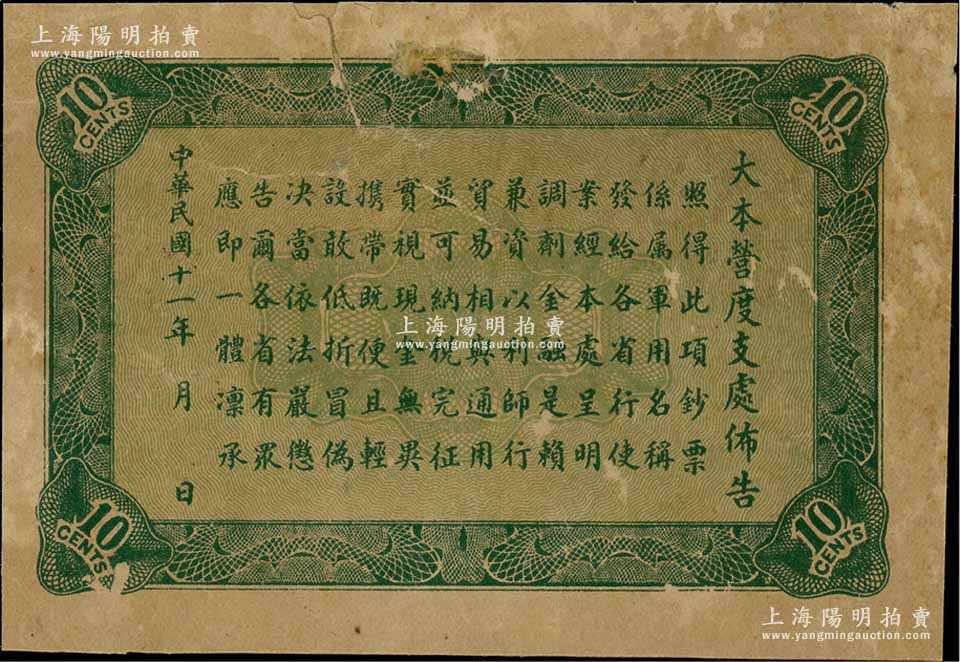 上海陽明拍賣
www.yangmingauction.com
10
CENTS
10
CENTS
大本營度支處佈告
照得此項鈔票
係属軍用名稱
發給各省行使
業經本處呈明
調劑金融是賴
兼資以利師行
貿易相與通用
並可納稅完征
實視現金無異
携帶既便且輕
設敢低折冒偽
决當依法嚴懲
告爾各省有眾
應即一體凛承
中華民國十一年 月 日
上海陽明拍賣
www.yangmingauction.com
10
CENTS
10
CENTS
上海陽明拍賣
www.yangmingauction.com